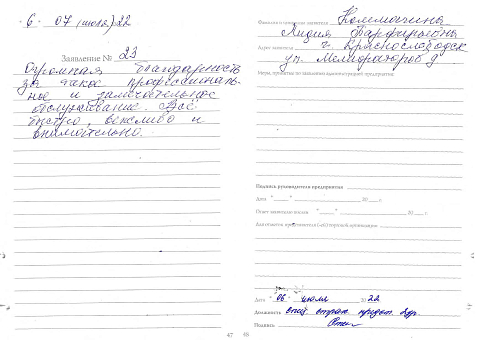 6 07 (июля) 22
Заявление № 23
Огромная благодарность
за такое профессиональ-
ное и замечательное
обслуживание. Всё
быстро, вежливо и
внимательно.
47
Фамилия и инициалы заявителя Коломагина
Лидия Парфирьевна
Адрес заявителя г. Краснослободск
ул. Мелиораторов 9
Меры, принятые по заявлению администрацией предприятия:
Подпись руководителя предприятия
Дата " " 20 г.
Ответ заявителю послан " " 20 г.
Для отметок представителя СЭО торговой организации
Дата "06" июля 2022
Должность спец.
Подпись
48